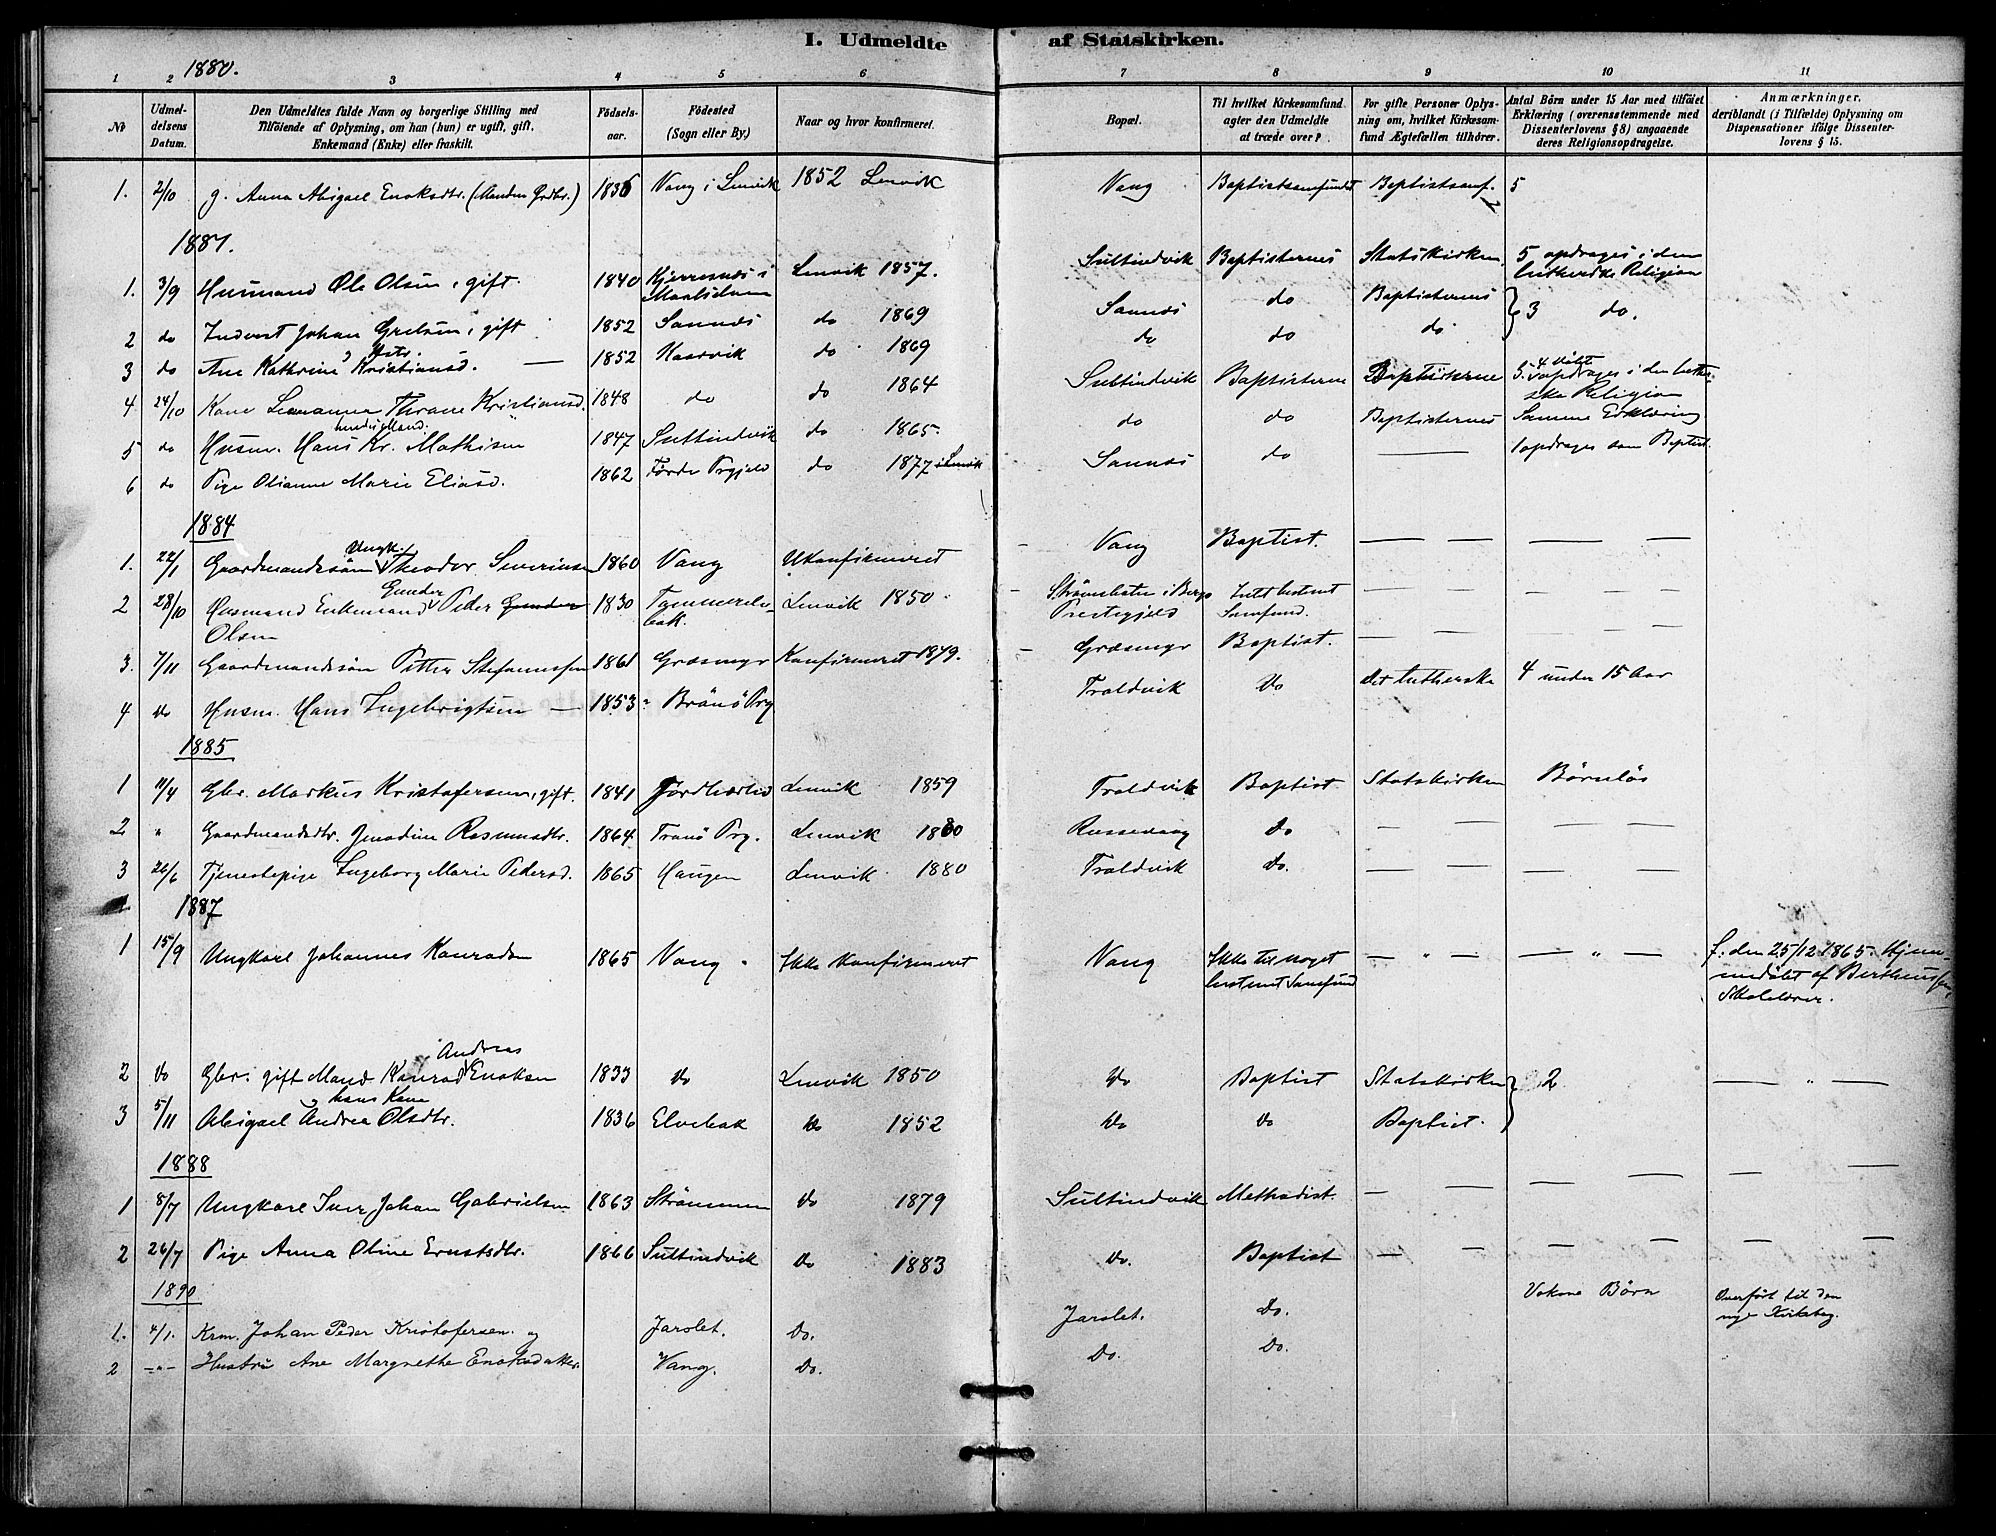 I. Udmeldte af Statskirken.
1 2 3 4 5 6 7 8 9 10 11
1880.
№
Udmeldelsens Datum.
Den Udmeldtes fulde Navn og borgerlige Stilling med
Tilföiende af Oplysning, om han (hun) er ugift, gift.
Enkemand (Enke) eller fraskilt.
Födsels-
aar.
Födested
(Sogn eller By.)
Naar og hvor konfirmeret.
Bopæl.
Til hvilket Kirkesamfund
agter den Udmeldte
at træde over?
For gifte Personer Oplys-
ning om, hvilket Kirkesam-
fund Ægtefællen tilhörer.
Antal Börn under 15 Aar med tilföiet
Erklæring (overensstemmende med
Dissenterlovens § 8) angaaende
deres Religionsopdragelse.
Anmærkninger,
deriblandt (i Tilfælde) Oplysning om
Dispensationer ifölge Dissenter-
lovens § 15.
1. 2/10 g. Anna Abigael Enoksdtr. (Manden Grdbr.) 1836 Vang i Lenvik 1852 Lenvik Vang Baptistsamfundet Baptistsamf. 5
1881.
1. 3/9 Husmand Ole Olsen, gift. 1840 Kjerresnes i Maalsdalen Lenvik 1857. Sultindvik Baptisternes Statskirken 5 opdrages i den lutherske Religion
2 do Inderst Johan Grelsen, gift 1852 Sannes do 1869 Sannes do Baptisternes 3 do.
3 do Ane Kathrine Kristiansd. Hstr. — 1852 Kaarvik do 1869 do do do
4 24/10 Kone Susanna Thrane Kristiansd. 1848 do do 1864 Sultindvik Baptisterne Baptisterne 5. 4 døbt opdrages i den luther-
ske Religion
5 do Husm. Hans Kr. Mathisen hendes Mand. 1847 Sultindvik do 1865. do do Baptisternes Samme Erklæring
6 do Pige Olianne Marie Eliasd. 1862 Førde Prgjeld do 1877 i Lenvik Sannes do — 1 opdrages som Baptist.
1884
1. 22/1 Gaardmandssøn Ungk. Theodor Severinsen 1860 Vang Ukonfirmeret Vang Baptist. — — — —
2 28/10 Husmand Enkemand Gunder Peder Gunder Olsen 1830 Tømmerelv-
bak. Lenvik 1850 Strømsbotn i Bergs
Prestegjeld Intet bestemt
Samfund. — — — —
3. 7/11 Gaardmandssøn Petter Stefanussen 1861 Græsmyr Konfirmeret 1879. Græsmyr Baptist. — — — —
4 Do Husm. Hans Ingebrigtsen — 1853 Brönö Prg Troldvik Do det lutherske 4 under 15 Aar
1885
1 11/4 Gbr. Markus Kristofersen, gift. 1841 Jordbærlid Lenvik 1859 Troldvik Baptist Statskirken Børnløs
2 " Gaardmandsdtr. Jensdine Rasmusdtr. 1864 Tranö Prg. Lenvik 1880 Russevaag Do — — — —
3 26/6 Tjenestepige Ingeborg Marie Pedersd. 1865 Haugen Lenvik 1880 Troldvik Do. — — — —
1887
1 15/9 Ungkarl Johannes Konradsen 1865 Vang Ikke konfirmeret Vang Ikke til noget
bestemt Samfund — " — — " — f. den 25/12 1865. Hjem-
medöbt af Bertheussen,
Skolelærer.
2 Do Gbr. gift Mand Konrad Andreas Enoksen 1833 Do Lenvik 1850 Do Baptist Statskirken 2 — " —
3 5/11 Abigael Andrea Olsdtr. hans Kone 1836 Elvebak Do 1852 Do Do Baptist.
1888
1 8/7 Ungkarl Iver Johan Gabrielsen 1863 Strömmen Do 1879 Sultindvik Methodist. — — — — — —
2 26/7 Pige Anna Oline Ernstsdtr. 1866 Sultindvik Do 1883 Do. Baptist — — — — — —
1890
1. 4/1. Krm. Johan Peder Kristofersen. og Jarslet. Do. Jarslet. Do. Voksne Börn Overført til den
nye Kirkebog.
2 —"— Hustru Ane Margrethe Enoksdatter. Vang. Do. Do. Do.